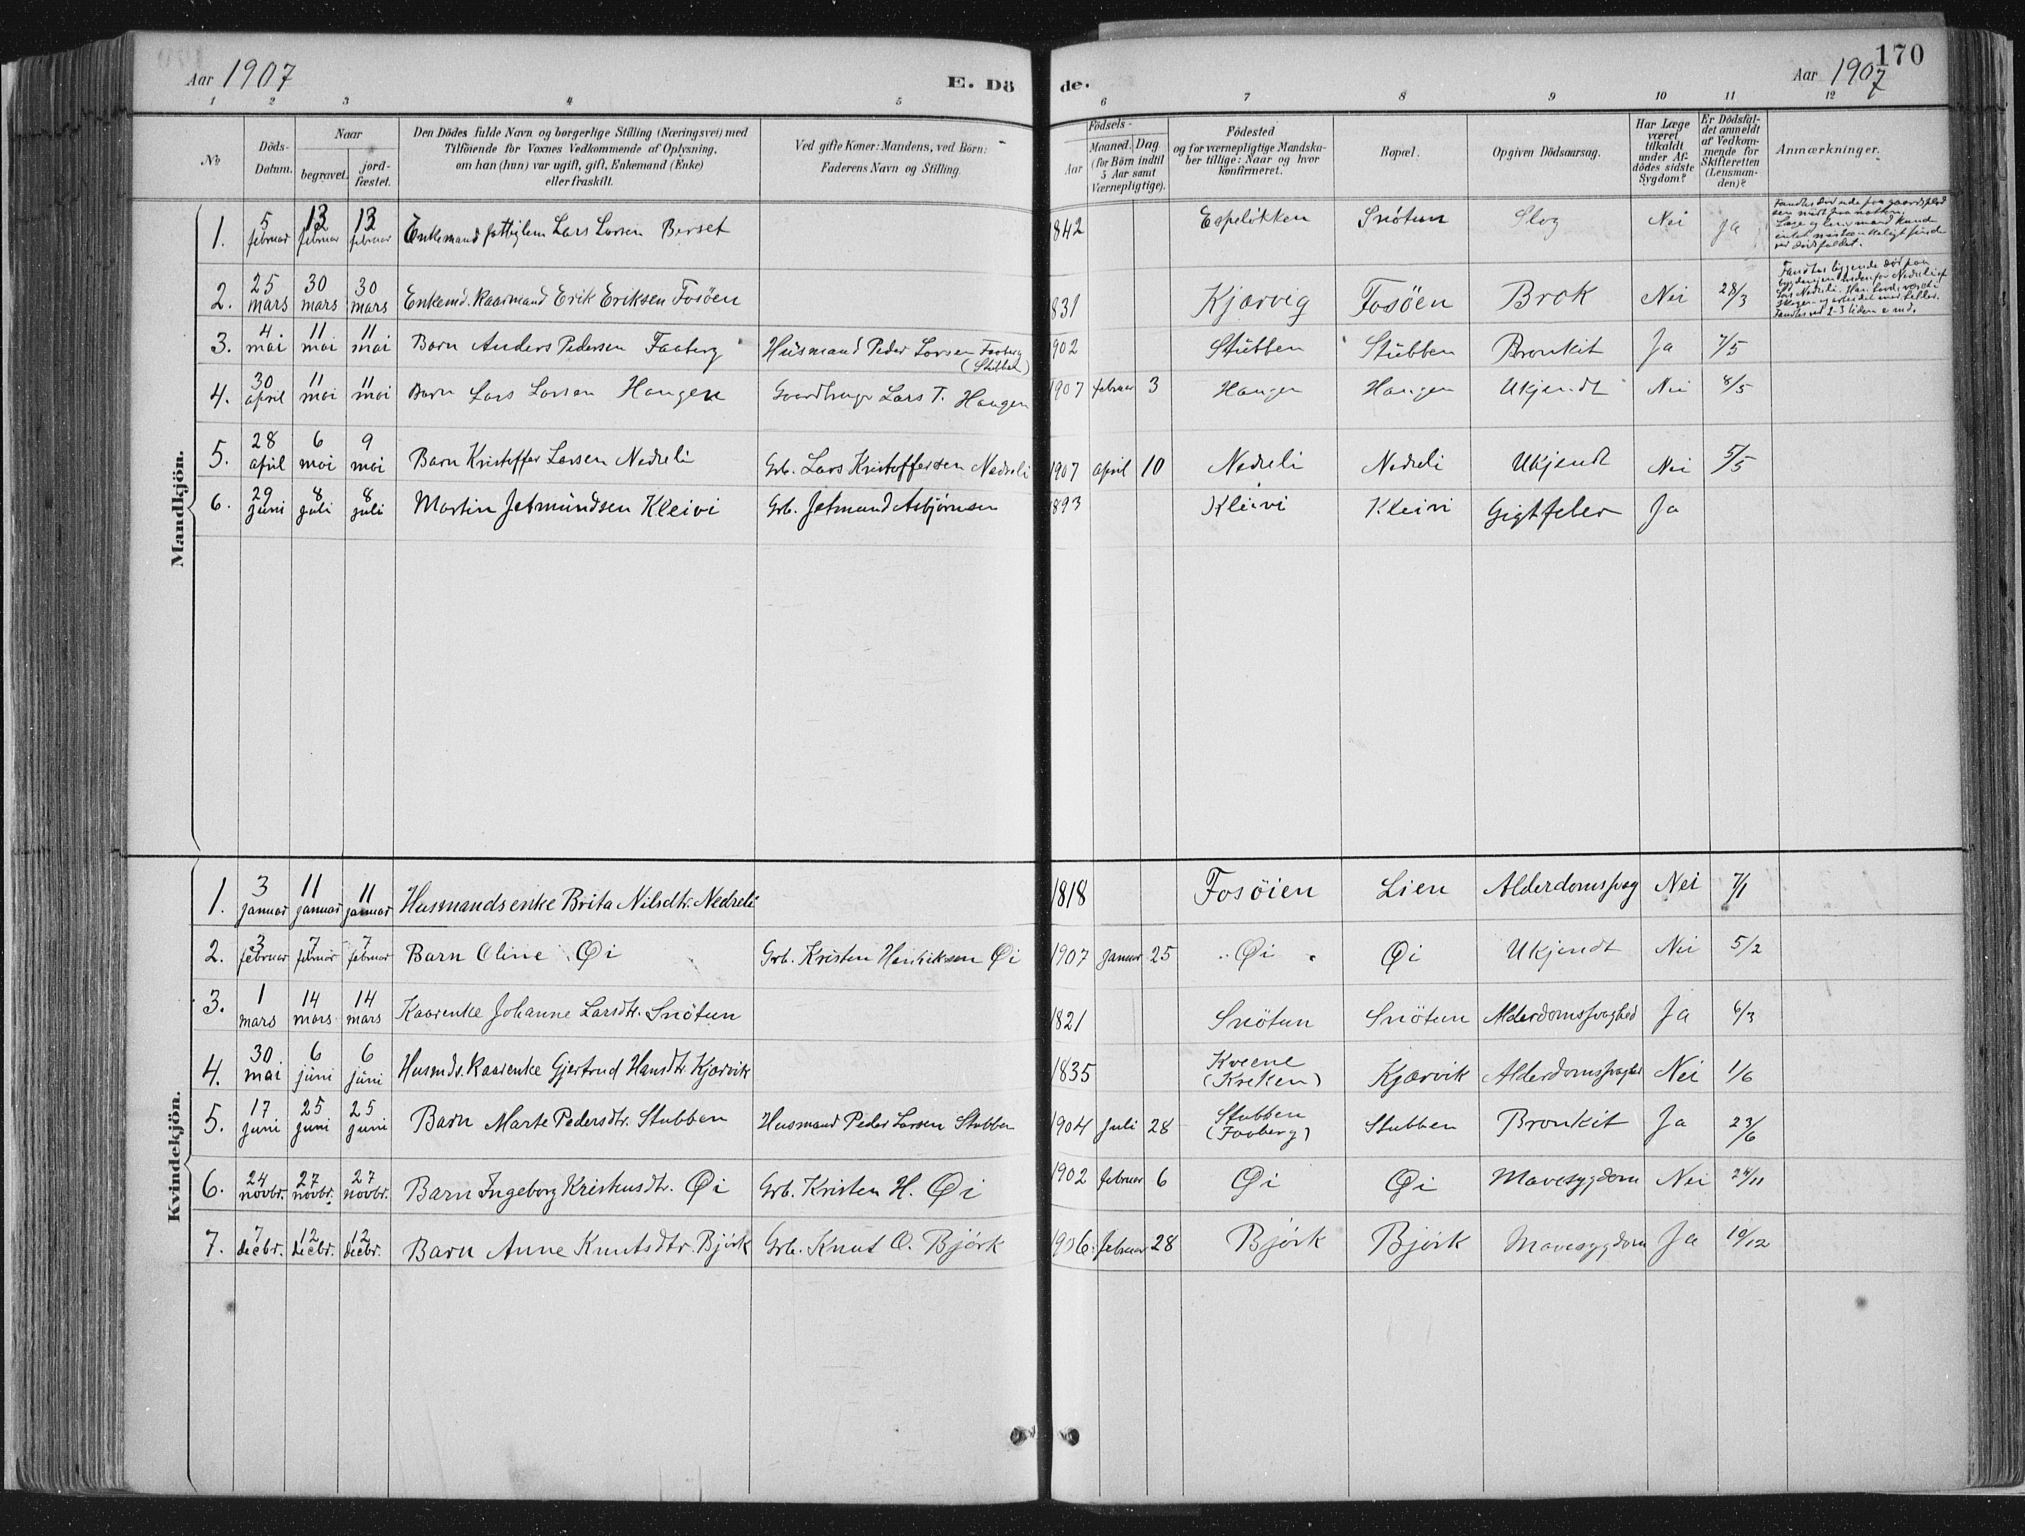 170
Aar 1907
E. Dö
de.
Aar 1907
1 2 3 4 5 6 7 8 9 10 11 12
№
Döds-Datum.
Naar
begravet.
jord-fæstet.
Den Dödes fulde Navn og borgerlige Stilling (Næringsvei) med
Tilföiende for Voxnes Vedkommende af Oplysning,
om han (hun) var ugift, gift, Enkemand (Enke)
eller fraskilt.
Ved gifte Koner: Mandens, ved Börn:
Faderens Navn og Stilling.
Födsels-
Aar
Maaned. Dag
(for Börn indtil
5 Aar samt
Værnepligtige).
Födested
og for værnepligtige Mandska-
ber tillige: Naar og hvor
konfirmeret.
Bopæl.
Opgiven Dödsaarsag.
Har Læge
været
tilkaldt
under Af-
dödes sidste
Sygdom?
Er Dödsfal-
det anmeldt
af Vedkom-
mende for
Skifteretten
(Lensman-
den)?
Anmærkninger.
Mandkjön.
1. 5 februar 13 februar 13 februar Enkemand fattiglem Lars Larsen Berset 842 Espeløkken Snötun Slag Nei Ja
2. 25 mars 30 mars 30 mars Enkemd. kaarmand Erik Eriksen Fosöen 831 Kjærvig Fosöen Brok Nei 28/3
3. 4 mai 11 mai 11 mai Barn Anders Pedersen Faaberg Husmand Peder Larsen Faaberg (Stubben) 902 Stubben Stubben Bronkit Ja 7/5
4. 30 april 11 mai 11 mai Barn Lars Larsen Haugen Gaardbruger Lars T. Haugen 1907 februar 3 Haugen Haugen Ukjendt Nei 8/5
5. 28 april 6 mai 9 mai Barn Kristoffer Larsen Nedreli Grb. Lars Kristoffersen Nedreli 1907 april 10 Nedreli Nedreli Ukjendt Nei 5/5
6. 29 juni 8 juli 8 juli Martin Jetmundsen Kleivi Grb. Jetmund Asbjørnsen 893 Kleivi Kleivi Gigtfeber Ja
Kvindekjön.
1. 3 januar 11 januar 11 januar Husmandsenke Brita Nilsdtr. Nedreli 1818 Fosöien Lien Alderdomssvag Nei 7/1
2. 3 februar 7 februar 7 februar Barn Oline Øi Grb. Kristen Henriksen Øi 1907 januar 25 Øi Øi Ukjendt Nei 5/2
3. 1 mars 14 mars 14 mars Kaarenke Johanne Larsdtr. Snötun 1821 Snötun Snötun Alderdomssvaghed Ja 6/3
4. 30 mai 6 juni 6 juni Husmds. kaarenke Gjertrud Hansdtr Kjørvik 1835 Kveene (Kreken) Kjærvik Alderdomssvaghed Nei 1/6
5. 17 juni 25 juni 25 juni Barn Marte Pedersdtr. Stubben Husmand Peder Larsen Stubben 1904 juli 28 Stubben (Faaberg) Stubben Bronkit Ja 23/6
6. 24 novbr. 27 novbr. 27 novbr. Barn Ingeborg Kristensdtr. Øi Grb. Kristen H. Øi 1902 februar 6 Øi Øi Mavesygdom Nei 24/11
7. 7 decbr. 12 decbr. 12 decbr. Barn Anne Knutsdtr. Bjørk Grb. Knut O. Bjørk 1906 februar 28 Bjørk Bjørk Mavesygdom Ja 10/12